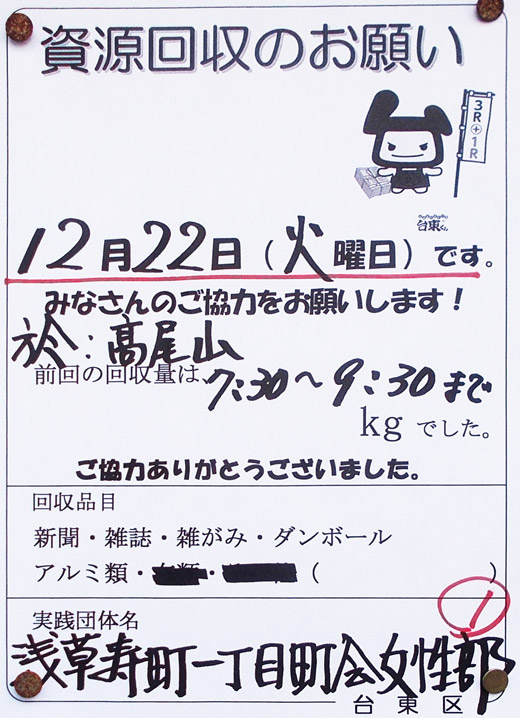 資源回収のお願い
3R+1R
台東くん
12月22日（火曜日）です。
みなさんのご協力をお願いします！
於：髙尾山
前回の回収量は、
7:30～9:30まで
kgでした。
ご協力ありがとうございました。
回収品目
新聞・雑誌・雑がみ・ダンボール
アルミ類・・（　　）
1
実践団体名
浅草寿町一丁目町会女性部
台東区